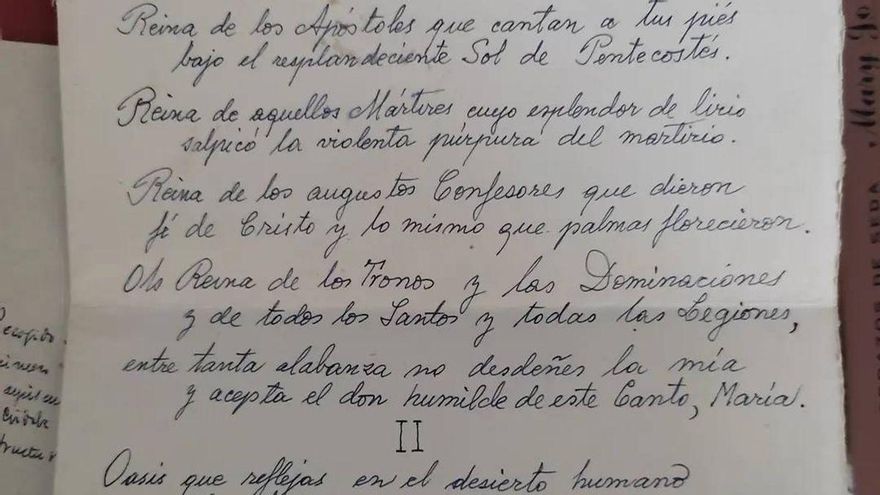 Reina de los Apóstoles que cantan a tus piés
bajo el resplandeciente Sol de Pentecostés.
Reina de aquellos Mártires cuyo esplendor de lirio
salpicó la violenta púrpura del martirio.
Reina de los augustos Confesores que dieron
fé de Cristo y lo mismo que palmas florecieron.
Oh Reina de los Tronos y las Dominaciónes
y de todos los Santos y todas las Legiones,
entre tanta alabanza no desdeñes la mía
y acepta el don humilde de este Canto, María.
II
Oasis que reflejas en el desierto humano
Mary
DE SEDA